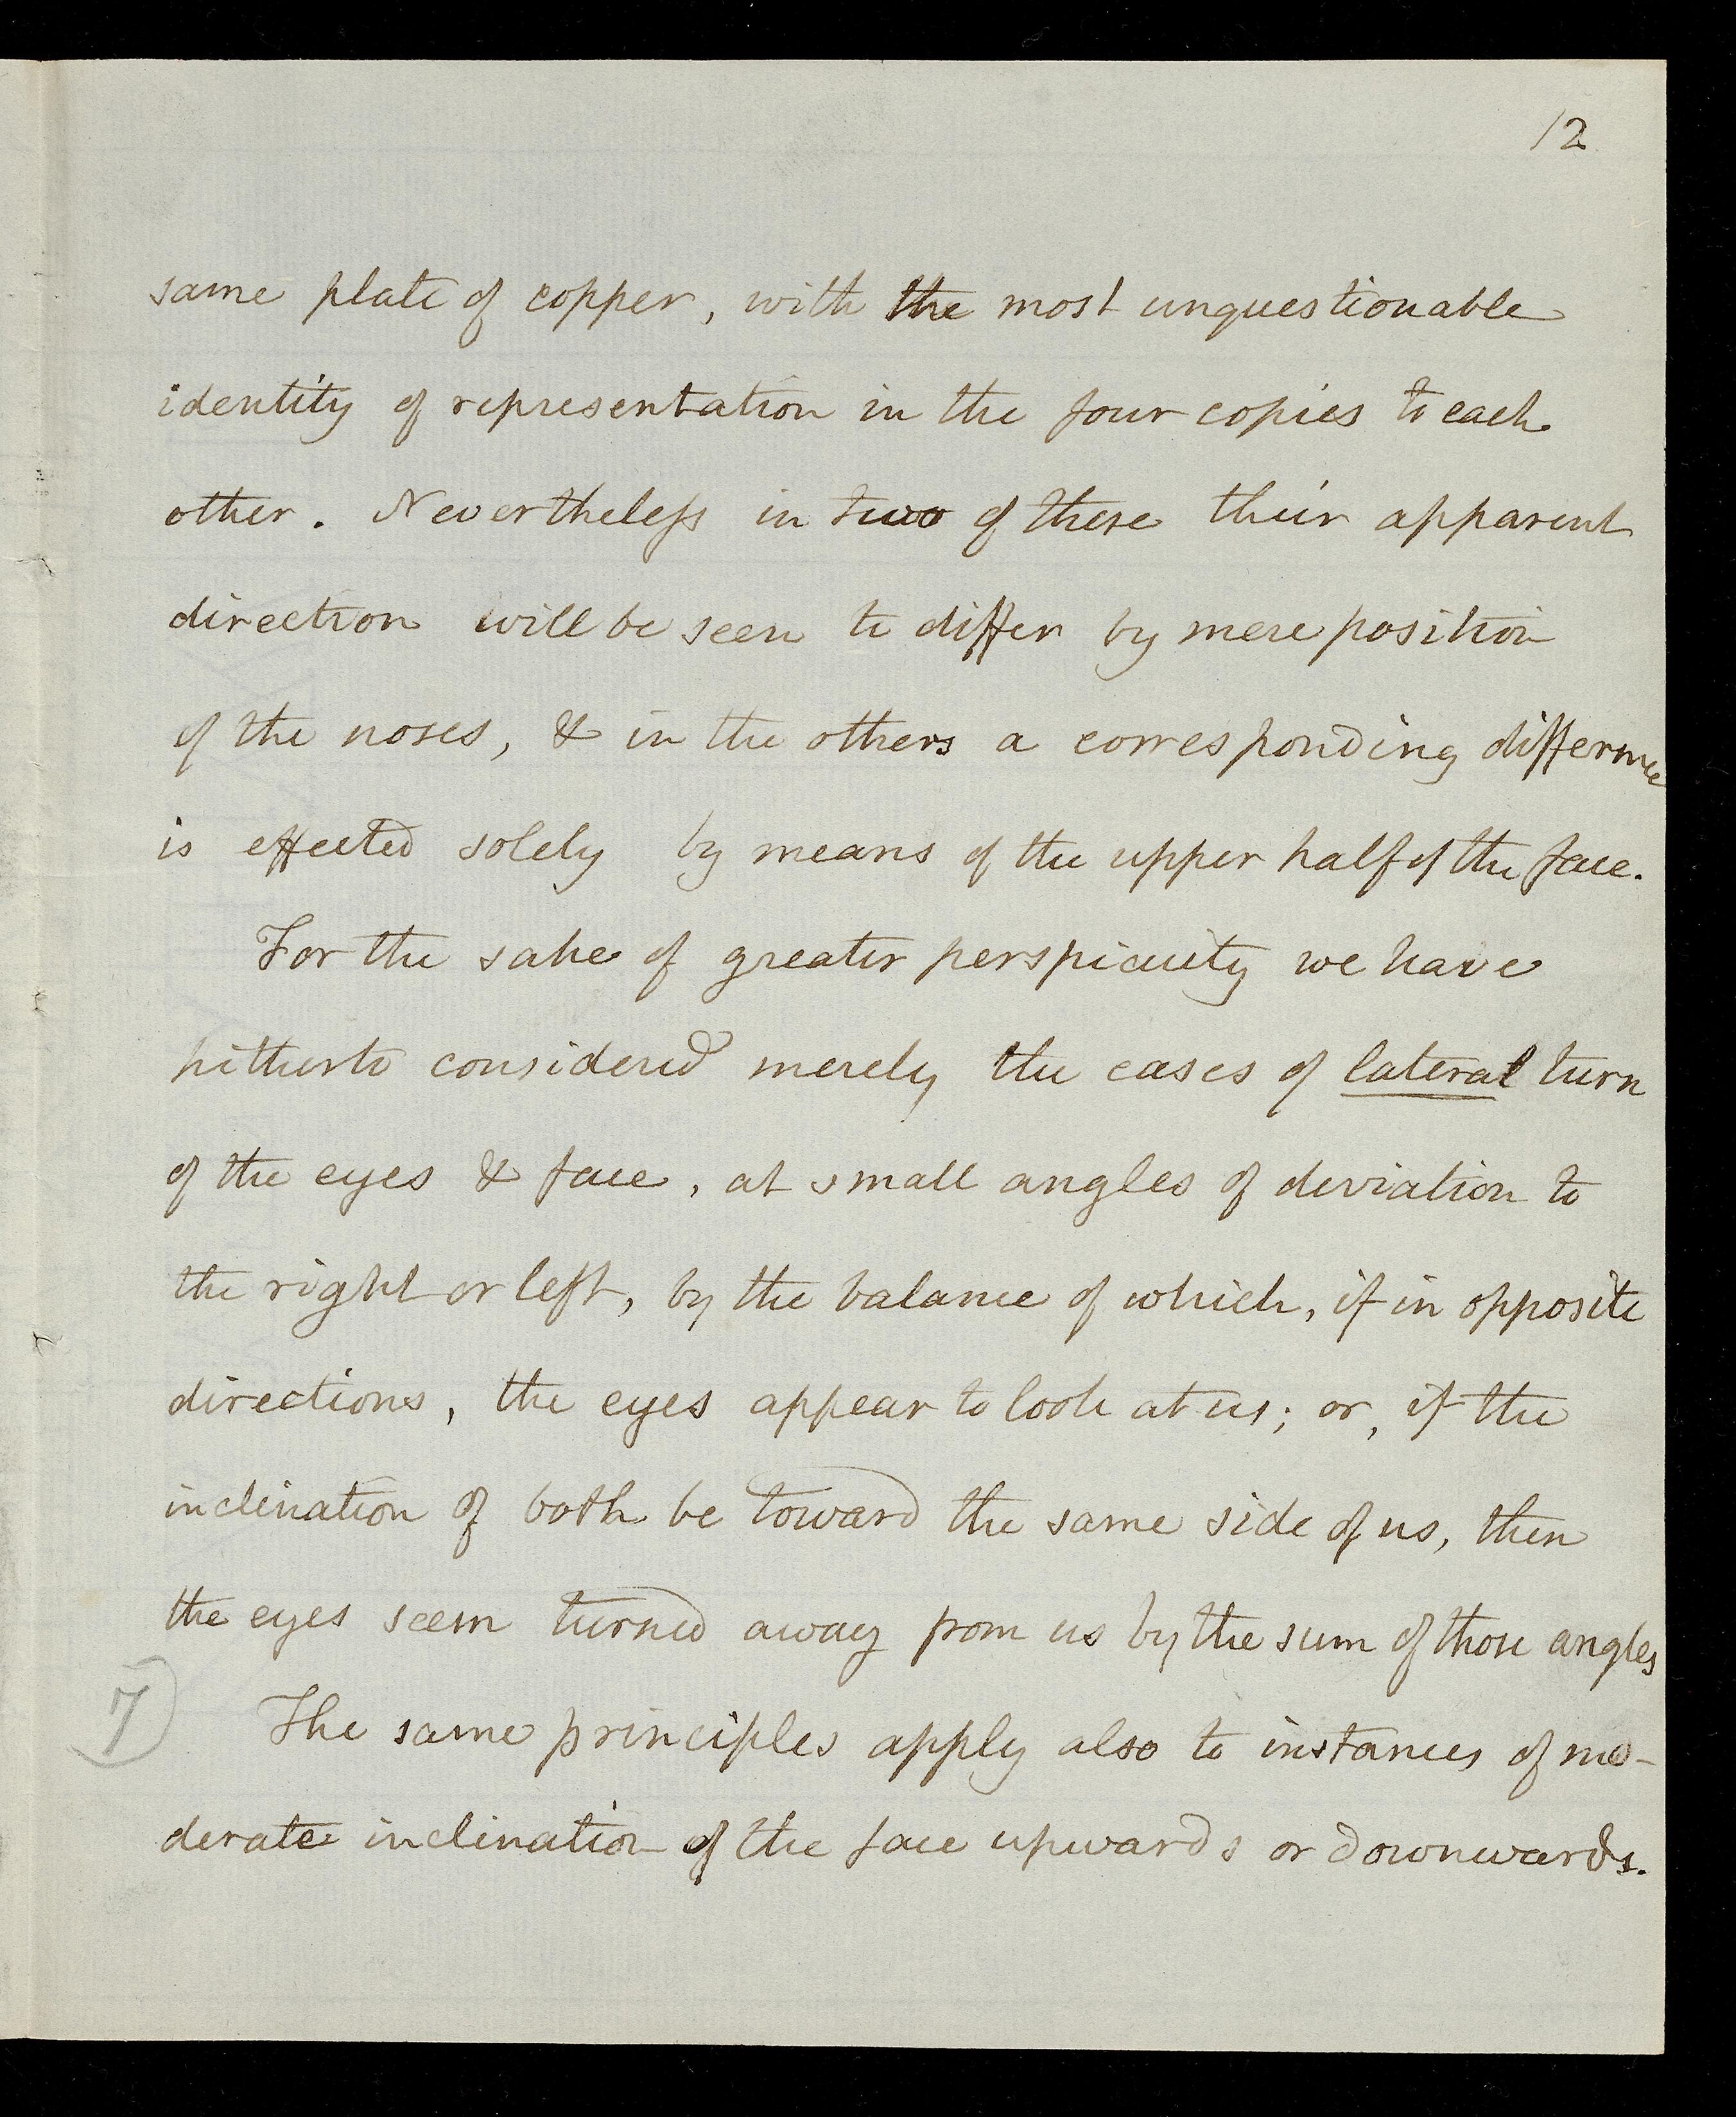 12
same plate of copper, with the most unquestionable
identity of representation in the four copies to each
other. Nevertheless in two of these their apparent
direction will be seen to differ by mere position
of the noses, & in the others a corresponding difference
is effected solely by means of the upper half of the face.
For the sake of greater perspicuity we have
hitherto considered merely the cases of lateral turn
of the eyes & face, at small angles of deviation to
the right or left, by the balance of which, if in opposite
directions, the eyes appear to look at us; or, if the
inclination of both be toward the same side of us, then
the eyes seem turned away from us by the sum of those angles
7 The same principles apply also to instances of mo-
derate inclination of the face upwards or downwards.